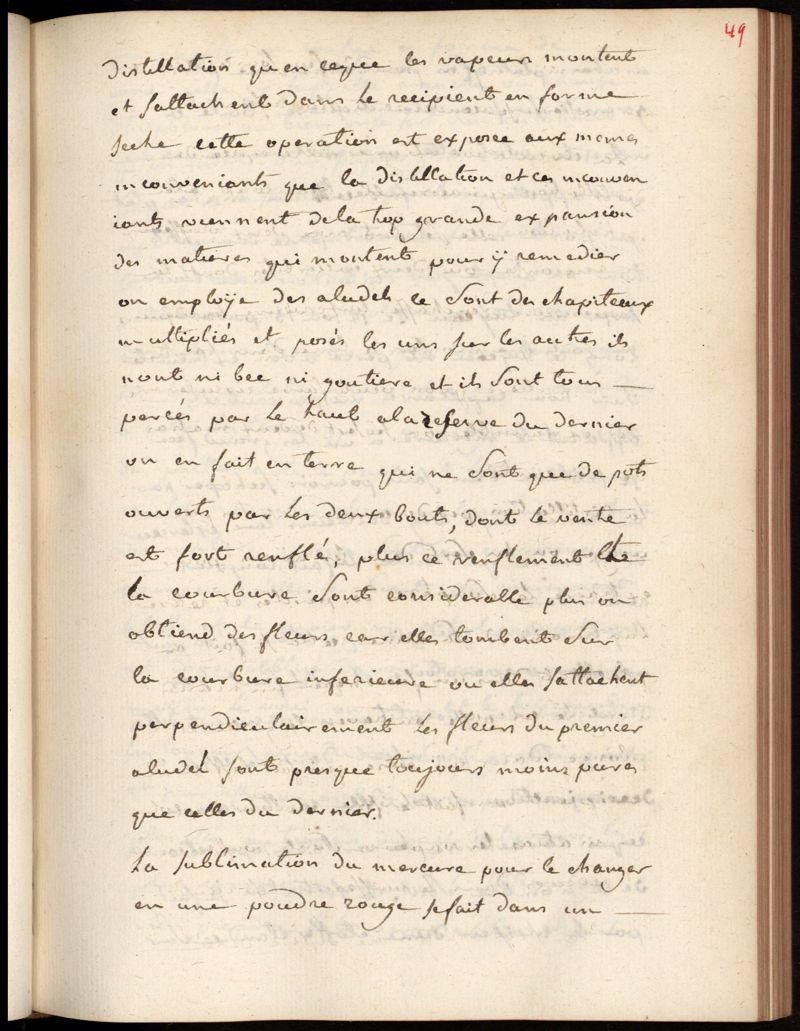 49
distillation qu'en ceque les vapeurs montent
et sattachent dans le recipient en forme
seche cette operation est exposée aux memes
inconveniants que la distillation et ces inconven
iants viennent dela trop grande expansion
des matieres qui montent pour ÿ remedier
on employe des aludels ce sont des chapiteaux
multipliés et posés les uns sur les autres ils
nont ni bec ni goutiere et ils sont tous —
percés par le haut ala reserve du dernier
on en fait en terre qui ne sont que de pots
ouverts par les deux bouts, dont le ventre
est fort renflé, plus ce renflement
la courbure sont considerable plus on
obtiend des fleurs car elles tombent sur
la courbure inferieure ou elles sattachent
perpendiculairement les fleurs du premier
aludel sont presque toujours moins pures
que celles du dernier.
La sublimation du mercure pour le changer
en une poudre rouge se fait dans un —